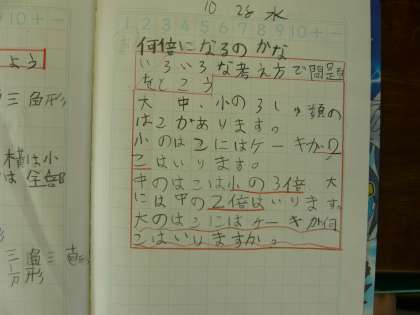 よう
三角形
横は小
は全部
三角三
方形
10 28 水
1 2 3 4 5 6 7 8 9 10 + −
何倍になるのかな
いろいろな考え方で問題
をとこう
大、中、小の3しゅ類の
はこがあります。
小のはこにはケーキが2
こはいります。
中のはこは小の3倍、大
には中の2倍はいります。
大のはこにはケーキが何
こはいりますか。